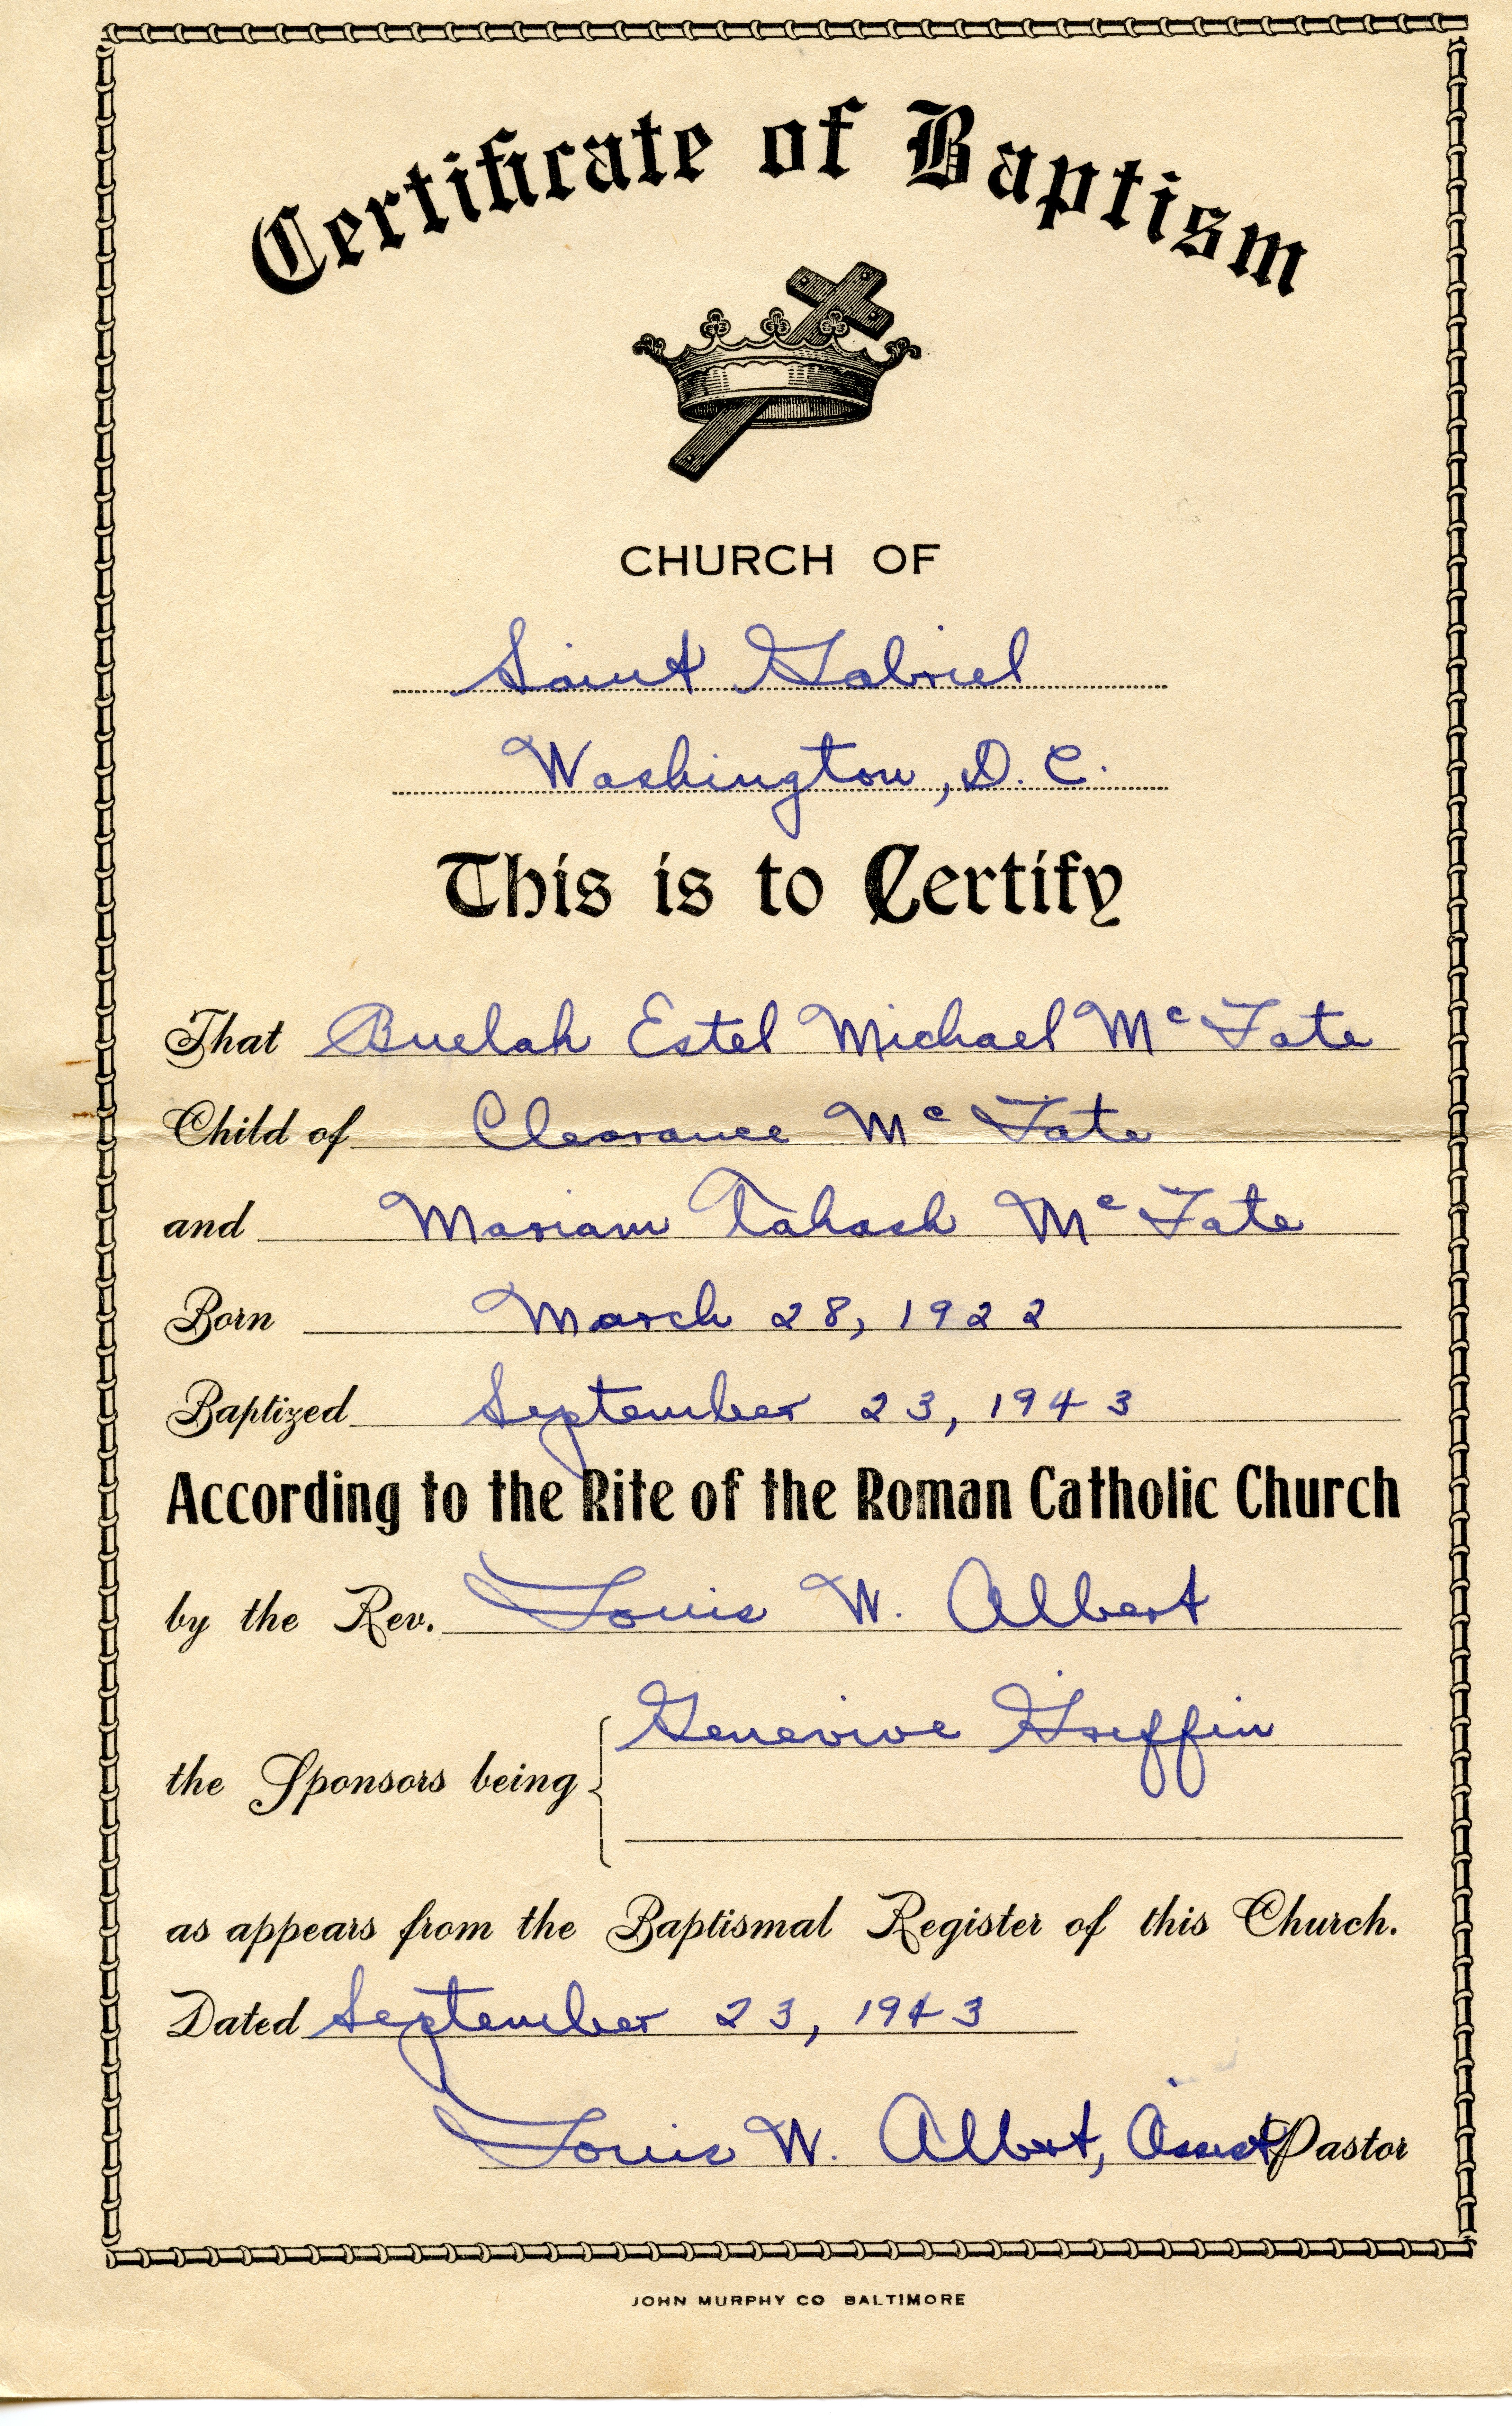 Certificate of Baptism
CHURCH OF
Saint Gabriel
Washington, D. C.
This is to Certify
That Buelah Estel Michael Mc Tate
Child of Clearance Mc Tate
and Mariam Tahash Mc Tate
Born March 28, 1922
Baptized September 23, 1943
According to the Rite of the Roman Catholic Church
by the Rev. Louis W. Albert
the Sponsors being Genevive Griffin
as appears from the Baptismal Register of this Church.
Dated September 23, 1943
Louis W. Albert, Asst Pastor
JOHN MURPHY CO BALTIMORE